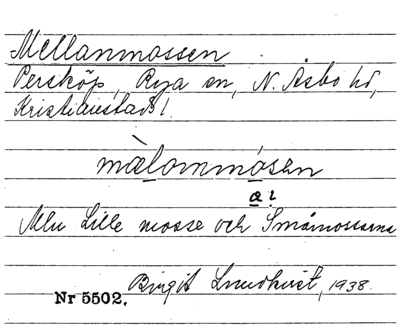 Mellanmossen
Perstorp, Rya sn, N. Åsbo hd,
Kristianstads l.
mèlommósen
a?
Mln Lille mosse och Småmossarna
Birgit Lundkvist, 1938.
Nr 5502.